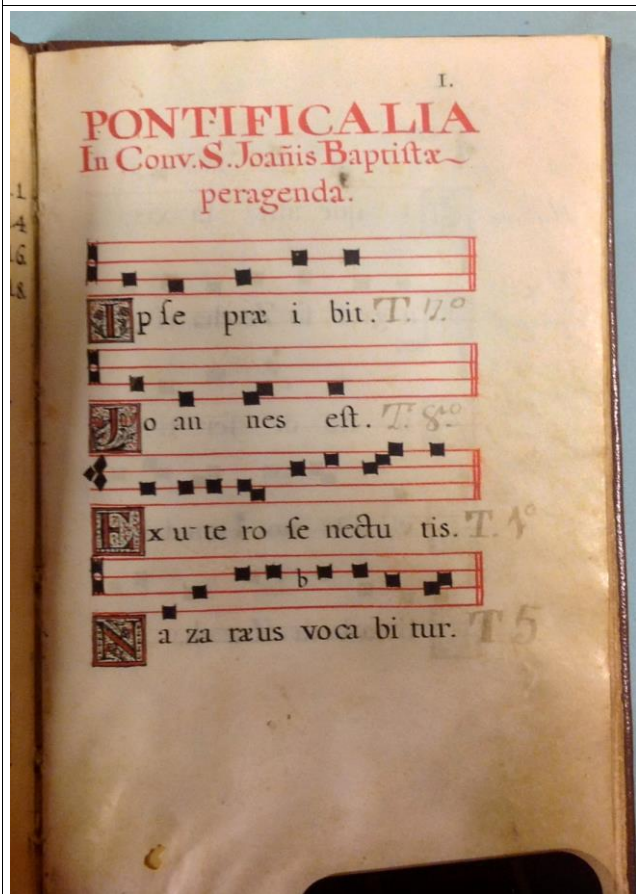 1.
PONTIFICALIA
In Conv. S. Joañis Baptistæ
peragenda.
Ipse præ i bit. T. 7.º
Jo an nes est. T. 8.º
Ex u-te ro se nectu tis. T. 1º
Na za ræus vo ca bi tur. T 5
1
4
6
8